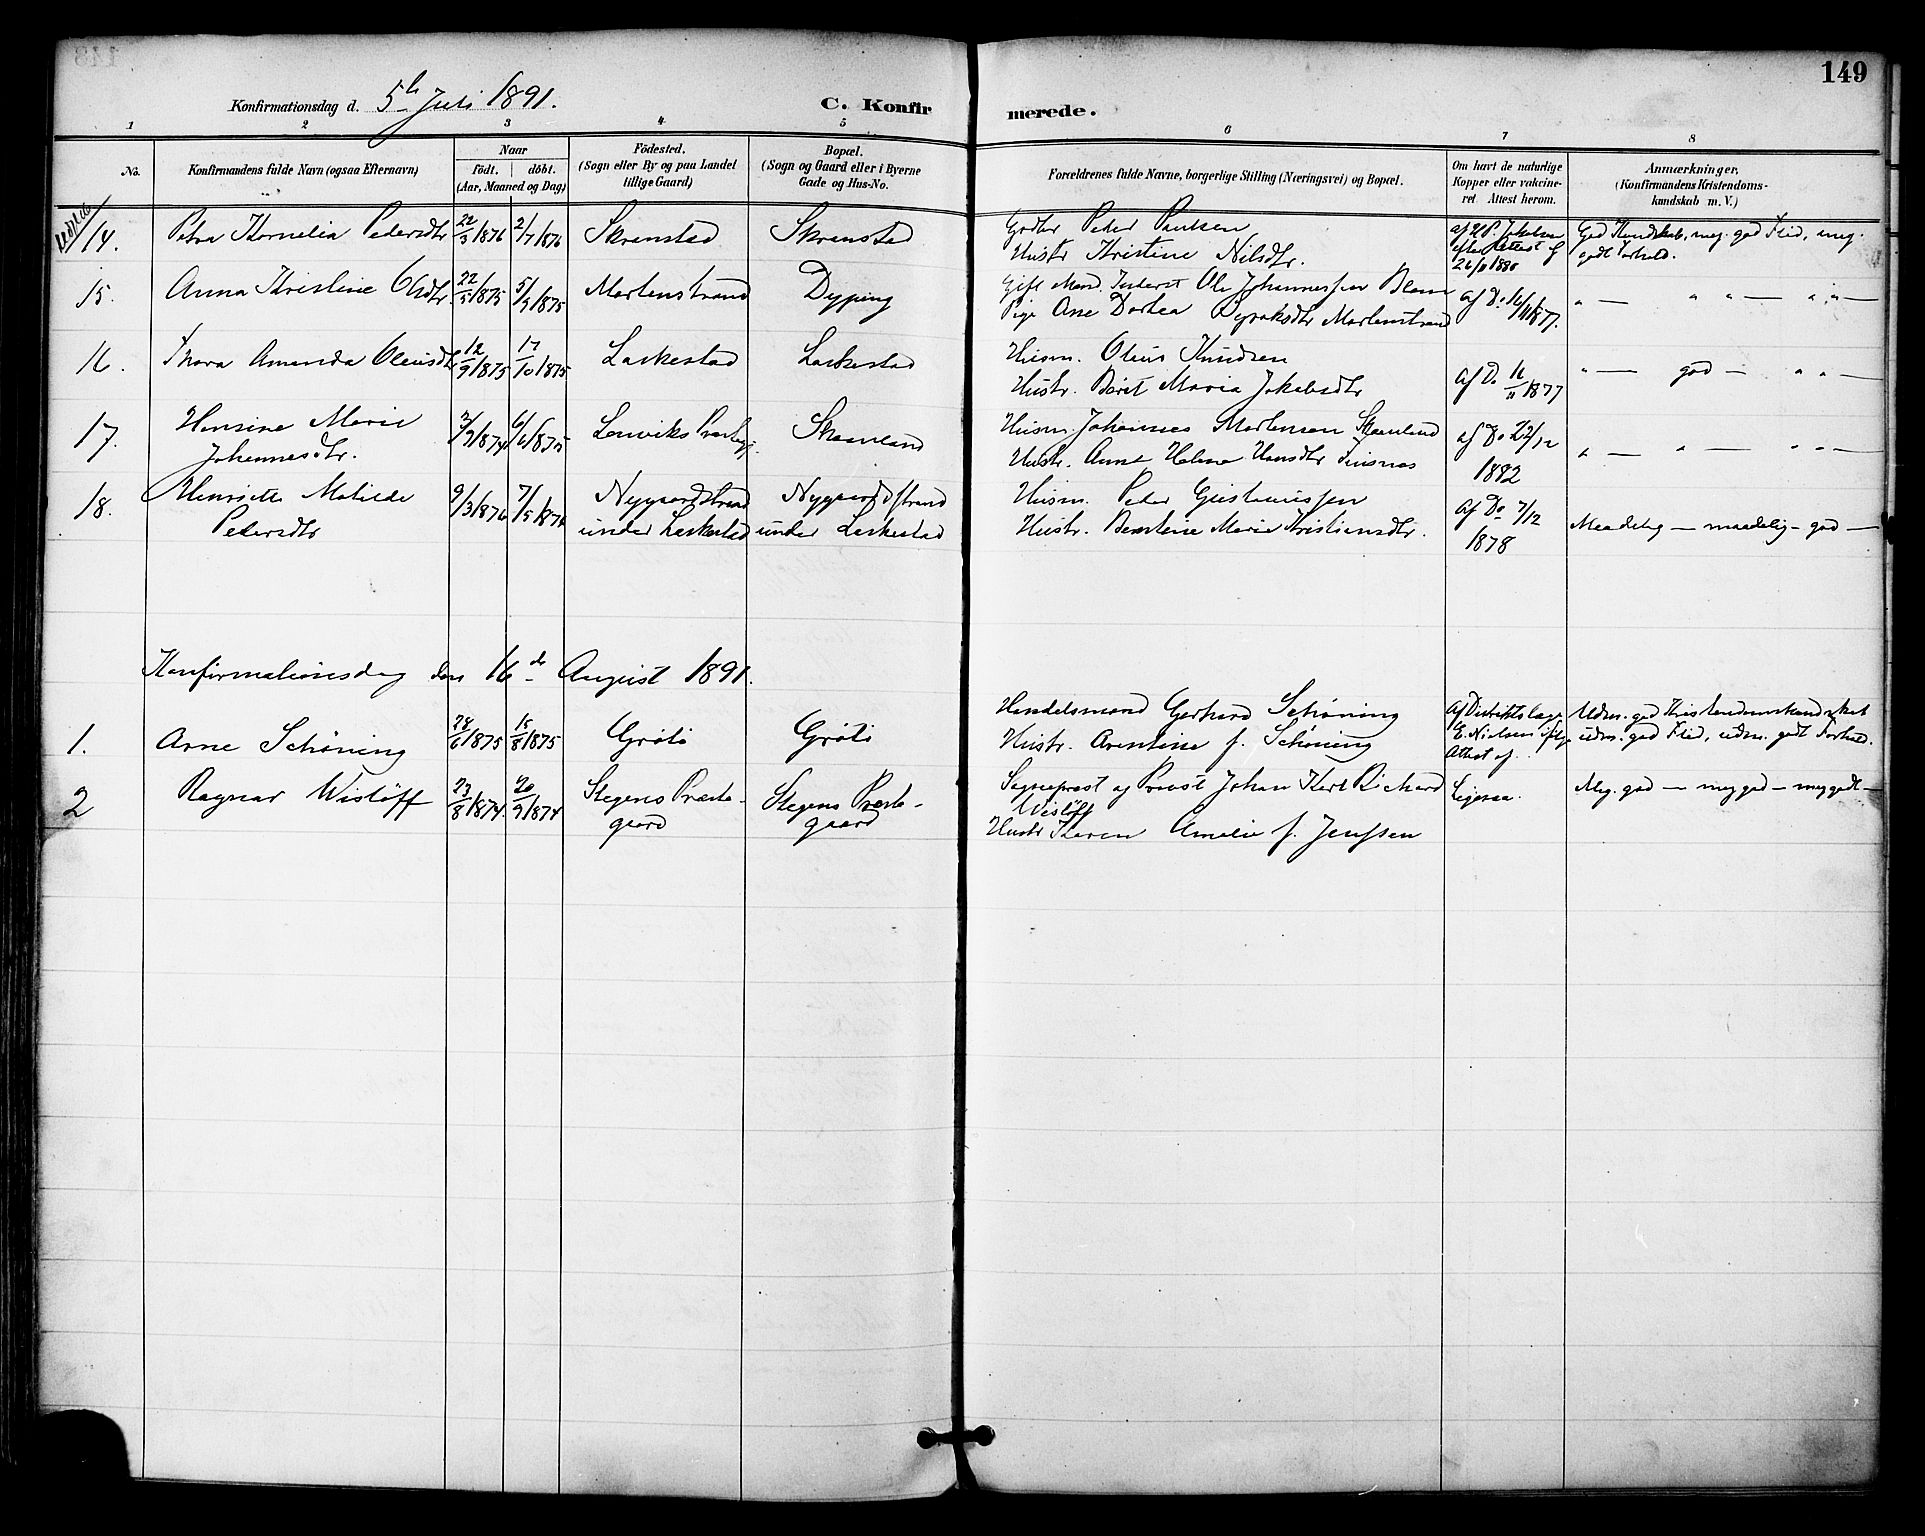 149
Konfirmationsdag d. 5te Juli 1891.
C. Konfirmerede.
1 2 3 4 5 6 7 8
No.
Konfirmandens fulde Navn (ogsaa Efternavn)
Naar
født. døbt.
(Aar, Maaned og Dag)
Födested.
(Sogn eller By og paa Landet
tillige Gaard)
Bopæl.
(Sogn og Gaard eller i Byerne
Gade og Hus-No.
Forældrenes fulde Navne, borgerlige Stilling (Næringsvei) og Bopæl.
Om havt de naturlige
Kopper eller vakcine-
ret. Attest herom.
Anmærkninger.
(Konfirmandens Kristendoms-
kundskab m. V.)
14. Petra Kornelia Pedersdtr 22/3 1876 2/7 1876 Skrenstad Skrenstad Grdbr Peder Paulsen
Hustr Kristine Nilsdtr.
af H P. Jakobsen
efter Attest af
26/11 1880
God Kundskab, meg. god Flid, meg.
godt Forhold.
15. Anna Kristine Olsdtr. 22/5 1875 5/9 1875 Mortenstrand Dyping Gift Mand, Inderst Ole Johannessen
Pige Ane Dortea Mortenstrand
af Do 16/11 1877.
" — " " — " " —
16. Thora Amanda Oleusdtr 12/9 1875 17/10 1875 Laskestad Laskestad Husm. Oleus Knudsen
Hustr. Beret Maria Jakobsdtr
af Do 16/11 1877
" — god — " " —
17. Hansine Marie
Johannesdtr. 2/9 1874 6/6 1875 Lenviks Præstegj. Skaanland Husm. Johannes Mortensen Skaanland
Hustr. Anne Helene Hansdtr Finsnes
af Do 22/12
1882
" — " — " " —
18. Henriette Matilde
Pedersdtr 9/3 1876 7/5 1876 Nygaardstrand
under Laskestad
Nygaardstrand
under Laskestad
Husm. Peder Gustavussen
Hustr. Berntine Marie Kristiansdtr.
af Do 7/12
1878
Maadelig — maadelig — god —
Konfirmationsdag den 16de August 1891.
1. Arne Schøning 28/6 1875 15/8 1875 Grötö Grötö Handelsmand Gerhard Schøning
Hustr. Arentine f. Schøning
Af Distriktslæge
E. Nielsen ifølge
Attest af
Udm. god Kristendomskundskab
udm. god Flid, udm. godt Forhold.
2 Ragnar Wislöff 23/8 1874 20/9 1874 Stegens Præste-
gaard
Stegens Præste-
gaard
Sogneprest og Provst Johan Karl Richard
Wislöff
Hustr Karen Amalie f. Jenssen
Ligesaa.
Meg. god — meg god — meg godt —